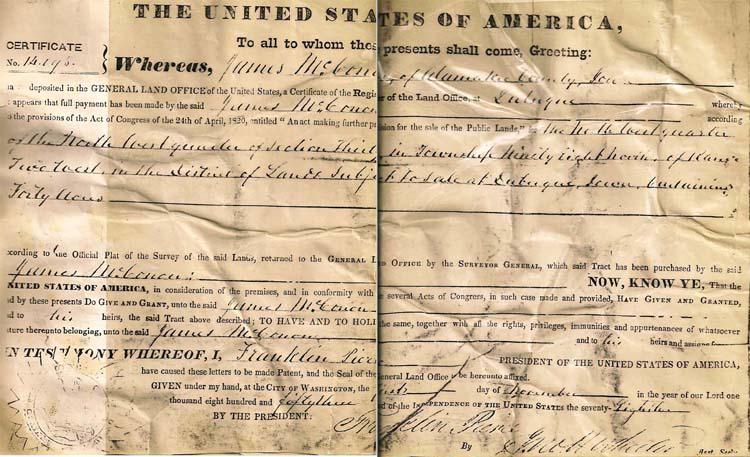 THE UNITED STATES OF AMERICA,
To all to whom these presents shall come, Greeting:
CERTIFICATE
No. 14.195
Whereas, James McCono of Alamakee County, Iowa
deposited in the GENERAL LAND OFFICE of the United States, a Certificate of the Regis er of the Land Office, at Dubuque whereby
appears that full payment has been made by the said James McConou according
o the provisions of the Act of Congress of the 24th of April, 1820, entitled "An act making further pr ision for the sale of the Public Lands," the North West quarter
of the North West quarter of Section Thirt in Township Ninety Eight North, of Range
Two West, in the District of Lands Subject to Sale at Dubuque Iowa, Containing
Forty Acres
ccording to the Official Plat of the Survey of the said Lands, returned to the GENERAL LAND OFFICE by the SURVEYOR GENERAL, which said Tract has been purchased by the said
James McConou NOW, KNOW YE, That the
NITED STATES OF AMERICA, in consideration of the premises, and in conformity with several Acts of Congress, in such case made and provided, HAVE GIVEN AND GRANTED,
d by these presents DO GIVE AND GRANT, unto the said James McConou
d to his heirs, the said Tract above described; TO HAVE AND TO HOL the same, together with all the rights, privileges, immunities and appurtenances of whatsoever
ture thereunto belonging, unto the said James McConou and to his heirs and assigns
N TESTIMONY WHEREOF, I, Franklin Pierc PRESIDENT OF THE UNITED STATES OF AMERICA,
have caused these letters to be made Patent, and the Seal of the General Land Office to be hereunto affixed.
GIVEN under my hand, at the CITY OF WASHINGTON, the first day of November in the year of our Lord one
thousand eight hundred and fifty three d of the INDEPENDENCE OF THE UNITED STATES the seventy-Eighth
BY THE PRESIDENT: Franklin Pierce
By